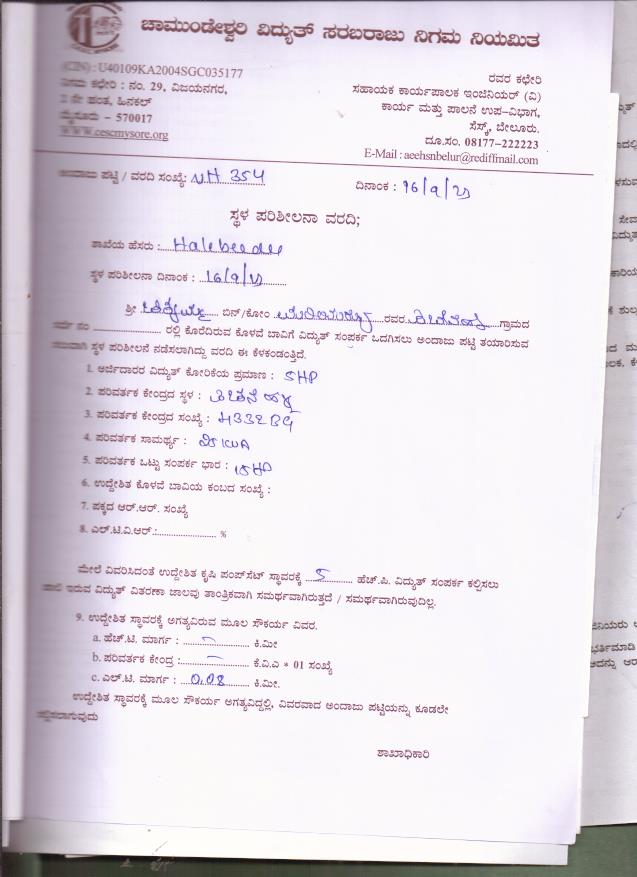 ಚಾಮುಂಡೇಶ್ವರಿ ವಿದ್ಯುತ್ ಸರಬರಾಜು ನಿಗಮ ನಿಯಮಿತ
(CIN) : U40109KA2004SGC035177
ನಿಗಮ ಕಛೇರಿ : ನಂ. 29, ವಿಜಯನಗರ,
2 ನೇ ಹಂತ, ಹಿನಕಲ್
ಮೈಸೂರು - 570017
www.cescmysore.org
ರವರ ಕಛೇರಿ
ಸಹಾಯಕ ಕಾರ್ಯಪಾಲಕ ಇಂಜಿನಿಯರ್ (ವಿ)
ಕಾರ್ಯ ಮತ್ತು ಪಾಲನೆ ಉಪ-ವಿಭಾಗ,
ಸೆಸ್ಕ್, ಬೇಲೂರು.
ದೂ.ಸಂ. 08177-222223
E-Mail : aeehsnbelur@rediffmail.com
ಅಂದಾಜು ಪಟ್ಟಿ / ವರದಿ ಸಂಖ್ಯೆ: NH 354
ದಿನಾಂಕ : 16/9/23
ಸ್ಥಳ ಪರಿಶೀಲನಾ ವರದಿ;
ಶಾಖೆಯ ಹೆಸರು : Halebeedu
ಸ್ಥಳ ಪರಿಶೀಲನಾ ದಿನಾಂಕ : 16/9/23
ಶ್ರೀ ಬಿನ್/ಕೋಂ ರವರ ಗ್ರಾಮದ
ಸರ್ವೆ ನಂ ರಲ್ಲಿ ಕೊರೆದಿರುವ ಕೊಳವೆ ಬಾವಿಗೆ ವಿದ್ಯುತ್ ಸಂಪರ್ಕ ಒದಗಿಸಲು ಅಂದಾಜು ಪಟ್ಟಿ ತಯಾರಿಸುವ
ಸಲುವಾಗಿ ಸ್ಥಳ ಪರಿಶೀಲನೆ ನಡೆಸಲಾಗಿದ್ದು ವರದಿ ಈ ಕೆಳಕಂಡಂತ್ತಿದೆ.
1. ಅರ್ಜಿದಾರರ ವಿದ್ಯುತ್ ಕೋರಿಕೆಯ ಪ್ರಮಾಣ : 5HP
2. ಪರಿವರ್ತಕ ಕೇಂದ್ರದ ಸ್ಥಳ :
3. ಪರಿವರ್ತಕ ಕೇಂದ್ರದ ಸಂಖ್ಯೆ :
4. ಪರಿವರ್ತಕ ಸಾಮರ್ಥ್ಯ :
5. ಪರಿವರ್ತಕ ಒಟ್ಟು ಸಂಪರ್ಕ ಭಾರ : 15HP
6. ಉದ್ದೇಶಿತ ಕೊಳವೆ ಬಾವಿಯ ಕಂಬದ ಸಂಖ್ಯೆ :
7. ಪಕ್ಕದ ಆರ್.ಆರ್. ಸಂಖ್ಯೆ
8. ಎಲ್.ಟಿ.ವಿ.ಆರ್.:.................... %
ಮೇಲೆ ವಿವರಿಸಿದಂತೆ ಉದ್ದೇಶಿತ ಕೃಷಿ ಪಂಪ್‌ಸೆಟ್ ಸ್ಥಾವರಕ್ಕೆ 5 ಹೆಚ್.ಪಿ. ವಿದ್ಯುತ್ ಸಂಪರ್ಕ ಕಲ್ಪಿಸಲು
ಹಾಲಿ ಇರುವ ವಿದ್ಯುತ್ ವಿತರಣಾ ಜಾಲವು ತಾಂತ್ರಿಕವಾಗಿ ಸಮರ್ಥವಾಗಿರುತ್ತದೆ / ಸಮರ್ಥವಾಗಿರುವುದಿಲ್ಲ.
9. ಉದ್ದೇಶಿತ ಸ್ಥಾವರಕ್ಕೆ ಅಗತ್ಯವಿರುವ ಮೂಲ ಸೌಕರ್ಯ ವಿವರ.
a. ಹೆಚ್.ಟಿ. ಮಾರ್ಗ : - ಕಿ.ಮೀ
b. ಪರಿವರ್ತಕ ಕೇಂದ್ರ : - ಕೆ.ವಿ.ಎ * 01 ಸಂಖ್ಯೆ
c. ಎಲ್.ಟಿ. ಮಾರ್ಗ : 0.08 ಕಿ.ಮೀ.
ಉದ್ದೇಶಿತ ಸ್ಥಾವರಕ್ಕೆ ಮೂಲ ಸೌಕರ್ಯ ಅಗತ್ಯವಿದ್ದಲ್ಲಿ, ವಿವರವಾದ ಅಂದಾಜು ಪಟ್ಟಿಯನ್ನು ಕೂಡಲೇ
ಸಲ್ಲಿಸಲಾಗುವುದು
ಶಾಖಾಧಿಕಾರಿ